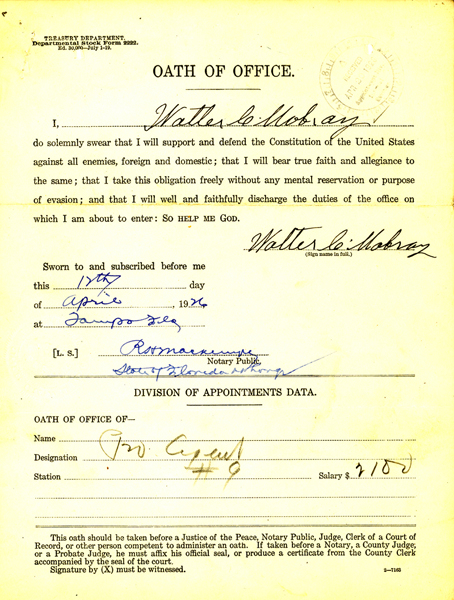 TREASURY DEPARTMENT,
Departmental Stock Form 2222.
Ed. 50,000—July 1-19.
OATH OF OFFICE.
I, Walter C. Mobray
do solemnly swear that I will support and defend the Constitution of the United States
against all enemies, foreign and domestic; that I will bear true faith and allegiance to
the same; that I take this obligation freely without any mental reservation or purpose
of evasion; and that I will well and faithfully discharge the duties of the office on
which I am about to enter: SO HELP ME GOD.
Walter C. Mobray
(Sign name in full.)
Sworn to and subscribed before me
this 12th day
of April, 1926
at Tampa Fla
[L. S.]
Notary Public,
State of Florida at Large
DIVISION OF APPOINTMENTS DATA.
OATH OF OFFICE OF—
Name
Designation Pro. Agent
Station # 9 Salary $ 2100
This oath should be taken before a Justice of the Peace, Notary Public, Judge, Clerk of a Court of
Record, or other person competent to administer an oath. If taken before a Notary, a County Judge,
or a Probate Judge, he must affix his official seal, or produce a certificate from the County Clerk
accompanied by the seal of the court.
Signature by (X) must be witnessed.
2—7163